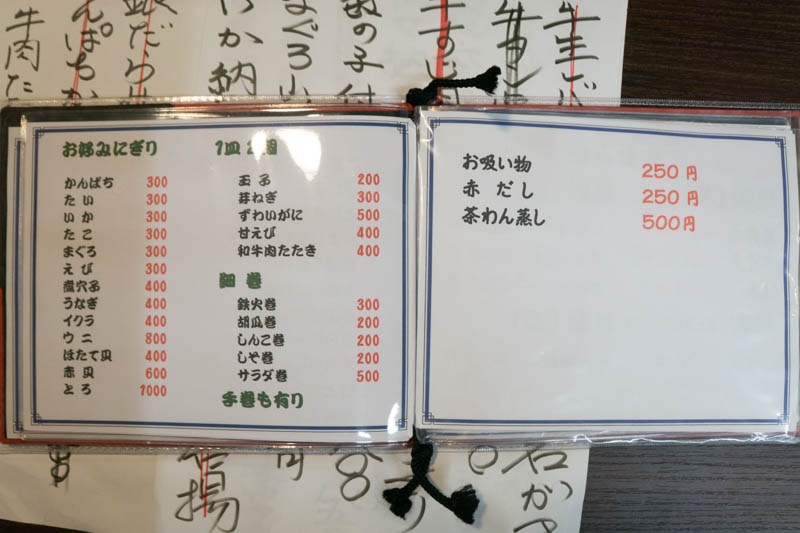 牛肉た
まぐろ山
お好みにぎり 1皿2個
かんぱち 300
たい 300
いか 300
たこ 300
まぐろ 300
えび 300
煮穴子 400
うなぎ 400
イクラ 400
ウニ 800
ほたて貝 400
赤貝 600
とろ 1000
玉子 200
芽ねぎ 300
ずわいがに 500
甘えび 400
和牛肉たたき 400
細巻
鉄火巻 300
胡瓜巻 200
しんこ巻 200
しそ巻 200
サラダ巻 500
手巻も有り
お吸い物 250円
赤だし 250円
茶わん蒸し 500円